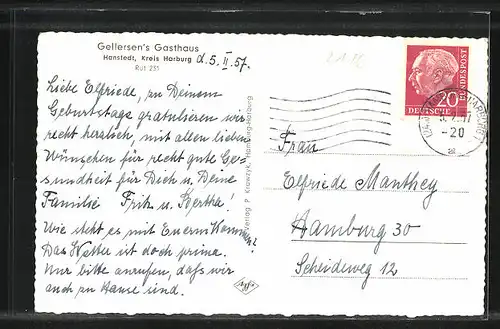 Gellersen's Gasthaus
Hanstedt, Kreis Harburg
Ruf 231
d. 5. II. 57.
Liebe Elfriede, zu Deinem
Geburtstage gratulieren wir
recht herzlich, mit allen lieben
Wünschen für recht gute Ge-
sundheit für Dich u. Deine
Familie Fritz u. Hertha!
Wie steht es mit Euerm Kommen?
Das Wetter ist doch prima.
Nur bitte anrufen, daß wir
auch zu Hause sind.
Verlag P. Krawzyk, Hamburg-Harburg
Agfa
20
DEUTSCHE BUNDESPOST
-20
Frau
Elfriede Manthey
Hamburg 30
Scheideweg 12